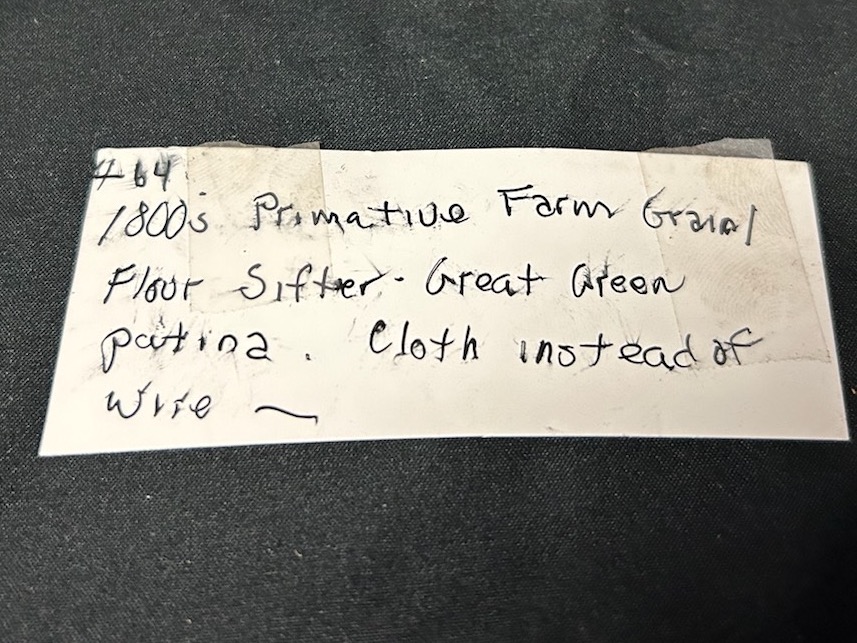 #64
1800's Primative Farm Grain/
Flour Sifter - Great Green
patina. Cloth instead of
Wire ~